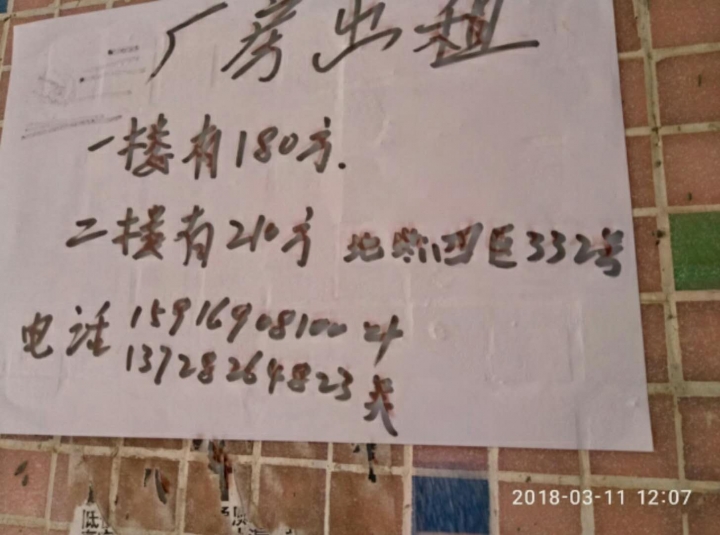 厂房出租
一楼有180方.
二楼有210方 四区332号
电话 15916908100
13728264823
2018-03-11 12:07